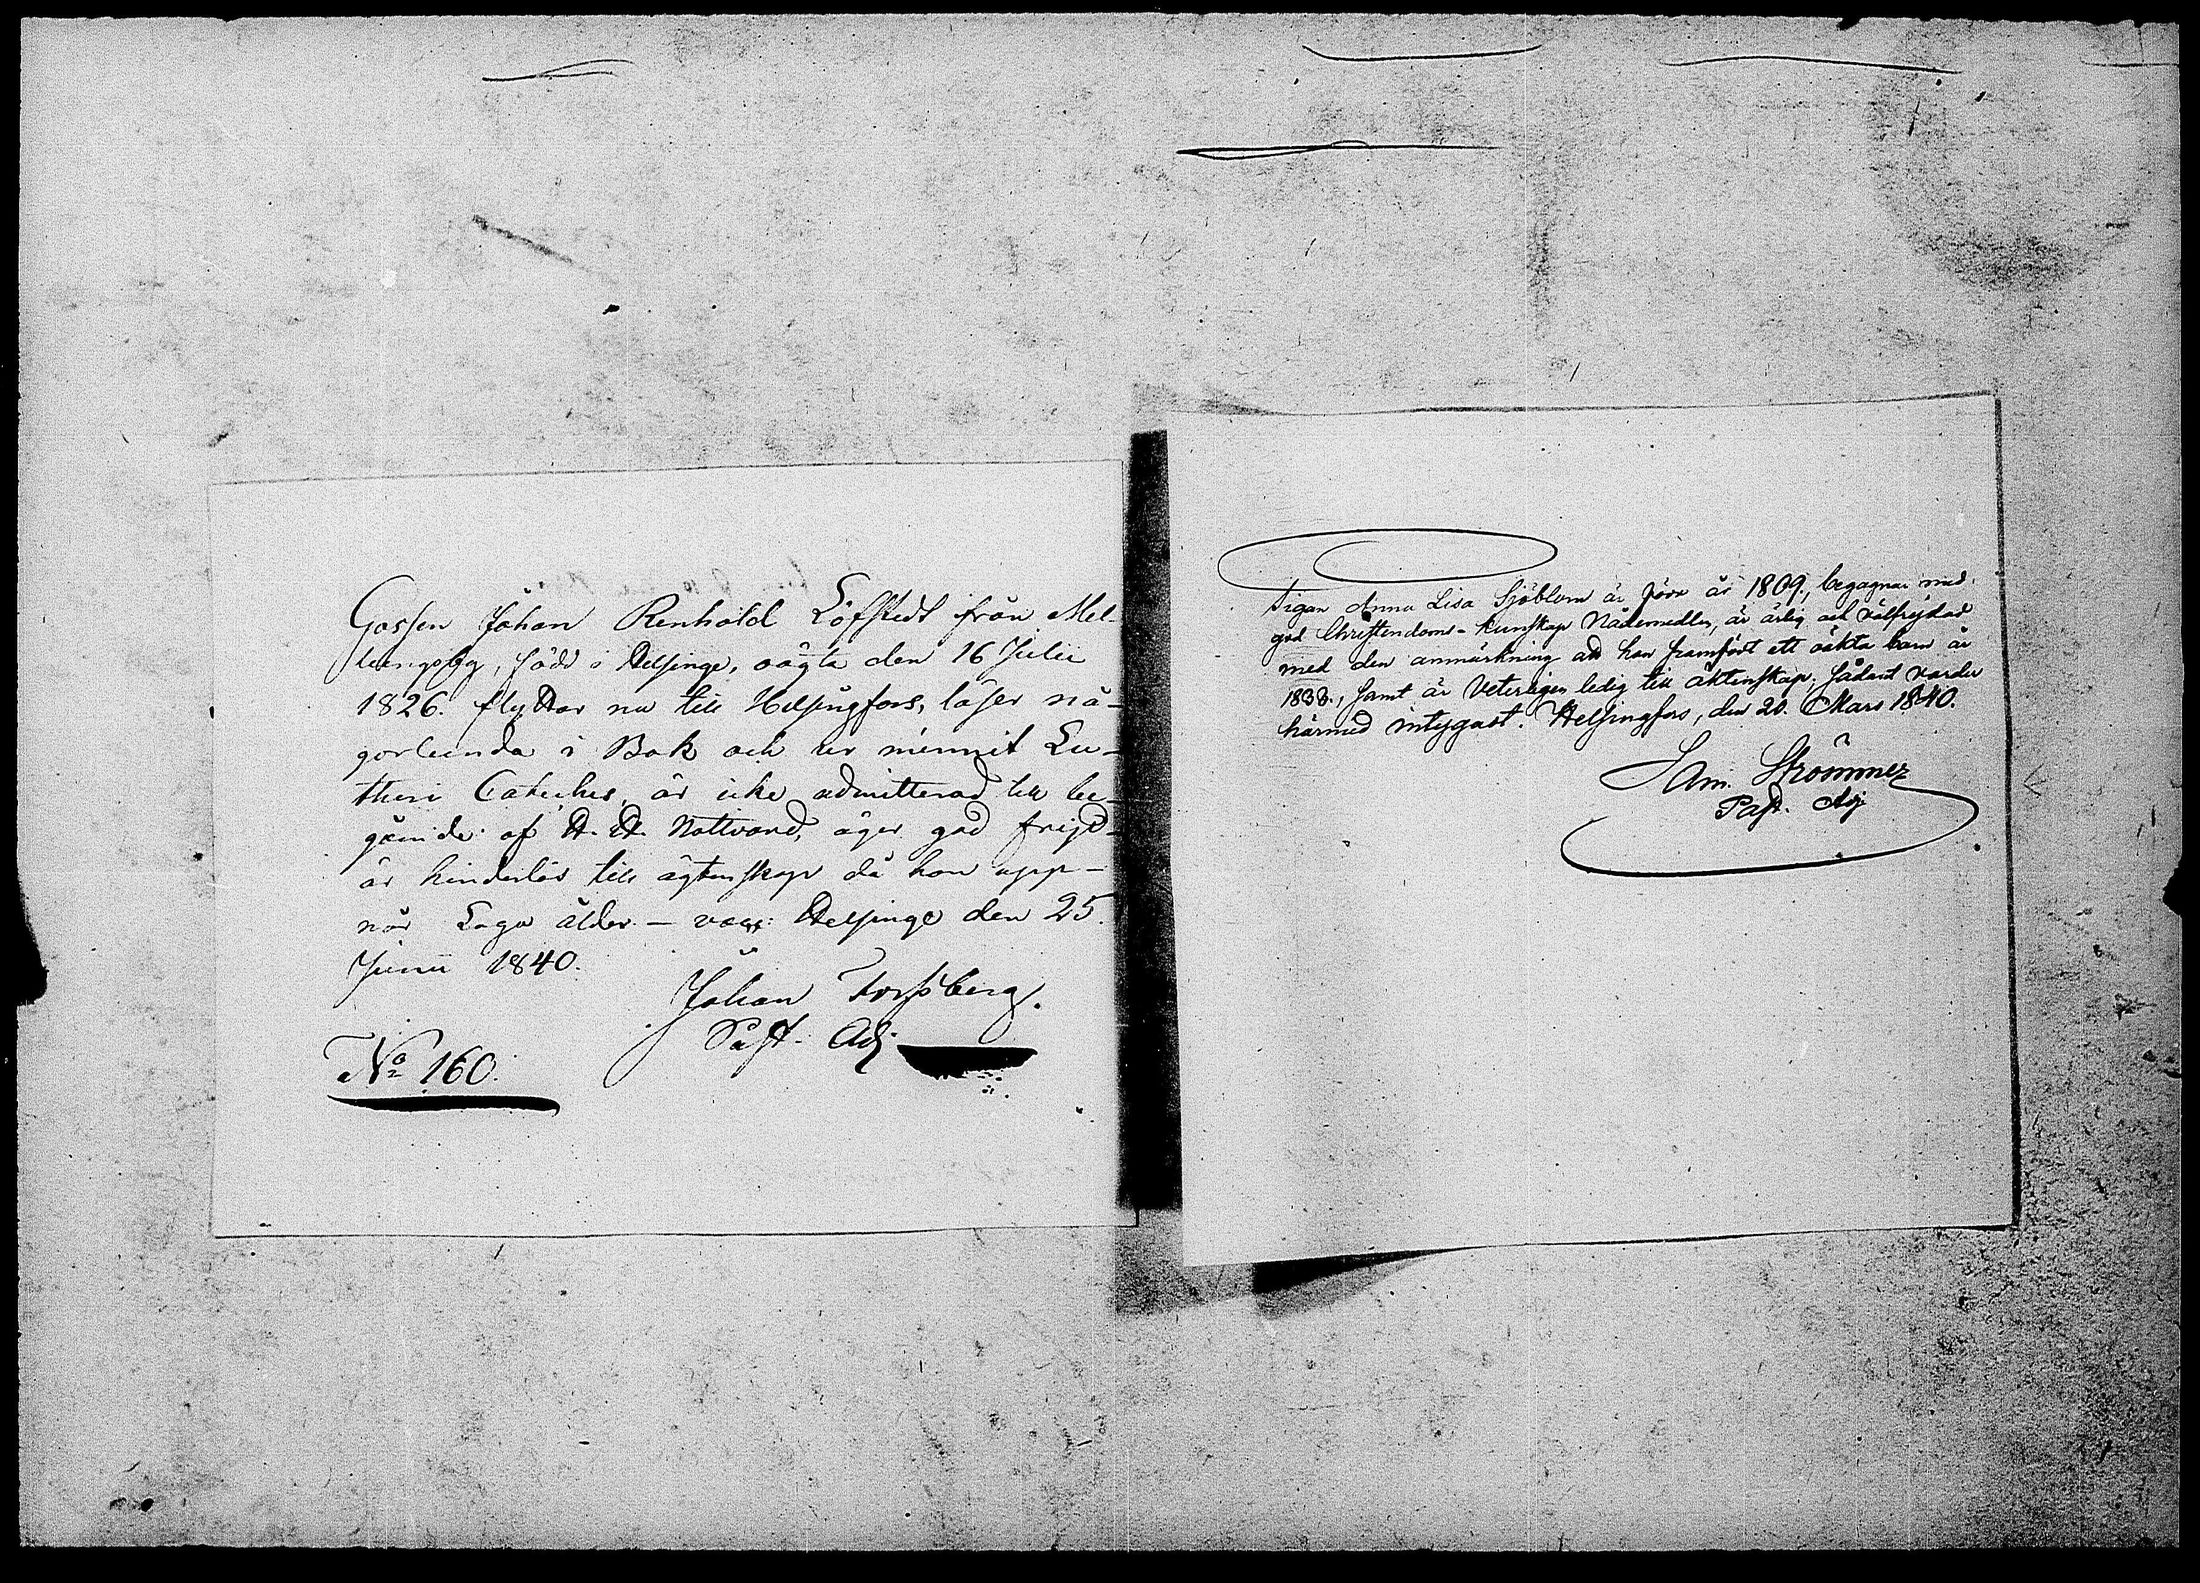 Gossen Johan Renhold Löfstedt från Mel-
lungsby, född i Helsinge, oägta den 16 Julii
1826. flyttar nu till Helsingfors, läser nå-
gorlunda i Bok och ur minnit Lu-
theri Cateches, är icke admitterad till be-
gående af H. H. Nattvard, äger god frejd
är hinderlös till ägtenskap då han upp-
når Laga ålder. — Helsinge den 25.
Junii 1840.
Johan Forssberg.
Past. Adj.
No 160.
Pigan Anna Lisa Sjöblom är född år 1809., begagnar med
god Christendoms-Kunskap Nådemedlen, är ärlig och välfrejdad
med den anmärkning att hon framfödt ett oäkta barn år
1833., samt är veterligen ledig till äktenskap; sådant varder
härmed intygadt. Helsingfors, den 20. Mars 1840.
Sam. Strömmer
Past. Adj.